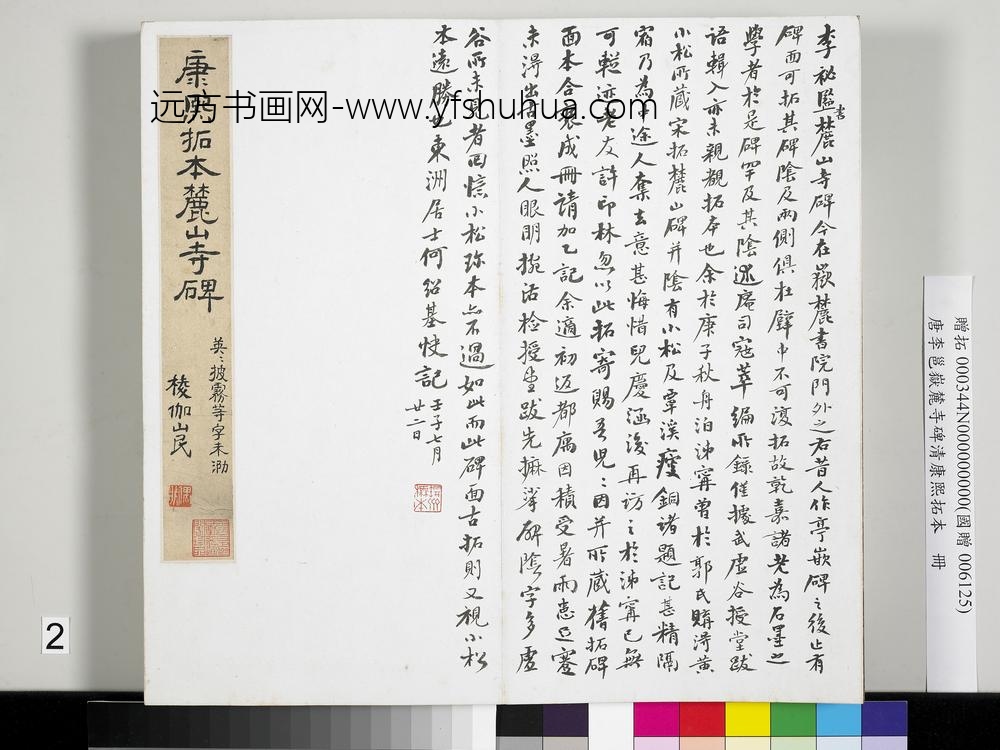 李祕監書麓山寺碑今在嶽麓書院門外之右昔人作亭嵌碑之後止有
碑而可拓其碑陰及兩側俱在壁中不可復拓故乾嘉諸老為石墨之
學者於是碑罕及其陰述庵司寇萃編所錄僅據武虛谷授堂跋
語輯入亦未親覩拓本也余於庚子秋舟泊沛寧曾於郭氏購得黃
小松所藏宋拓麓山碑并陰有小松及覃溪瘞銅諸題記甚精隔
宿乃為中途人奪去意甚悔惜兒慶涵後再訪之於沛寧已無
可蹤迹老友許印林忽以此拓寄賜吾兒〻因并所藏舊拓碑
面本合裝成冊請加乙記余適初返都寓因積受暑雨患足蹇
未得出楮墨照人眼明椀活檢授堂跋先摩挲碑陰字多虛
谷所未見者回憶小松珍本亦不過如此而此碑面古拓則又視小松
本遠勝也東洲居士何紹基快記
壬子七月
廿二日
康熙拓本麓山寺碑
英〻披霧等字未泐
棱伽山民
远方书画网-www.yfshuhua.com
贈拓 000344N000000000(國贈 006125)
唐李邕嶽麓寺碑清康熙拓本 冊
2